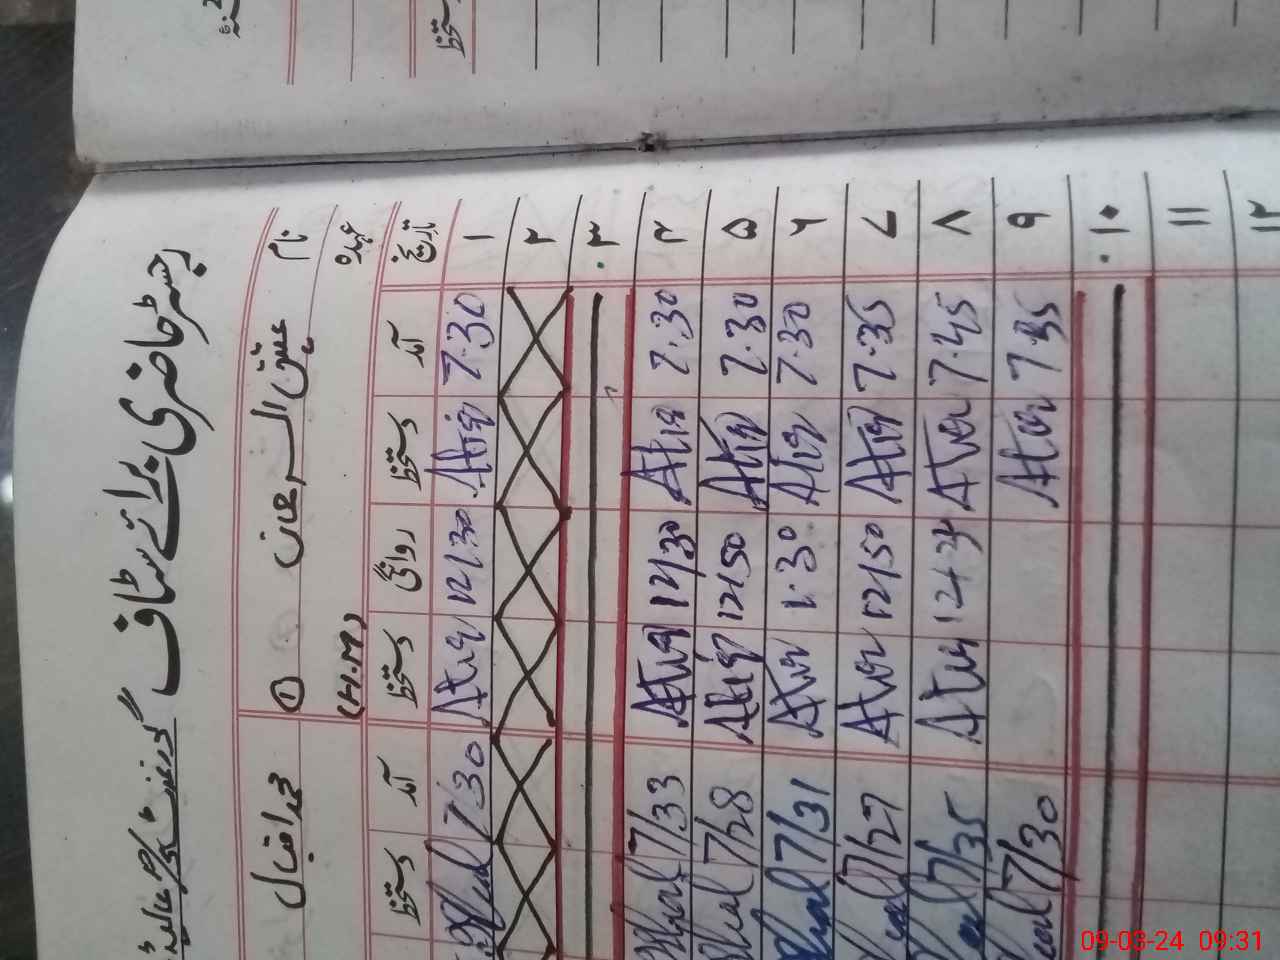 رجسٹر حاضری برائے سٹاف گورنمنٹ
نام عتیق الرحمان ① محمد اقبال
عہدہ (H.M)
تاریخ آمد دستخط روانگی دستخط آمد دستخط
۱ 7.30 Atiq 12/30 Atiq 7/30
۲
۳
۴ 7.30 Atiq 12/30 Atiq 7/33
۵ 7.30 Atiq 12/50 Atiq 7/28
۶ 7.30 Atiq 1.30 Atiq 7/31
۷ 7.35 Atiq 12/50 Atiq 7/27
۸ 7.45 Atiq Atiq 7/35
۹ 7.35 Atiq 7/30
۱۰
۱۱
۱۲
دستخط
09-03-24 09:31